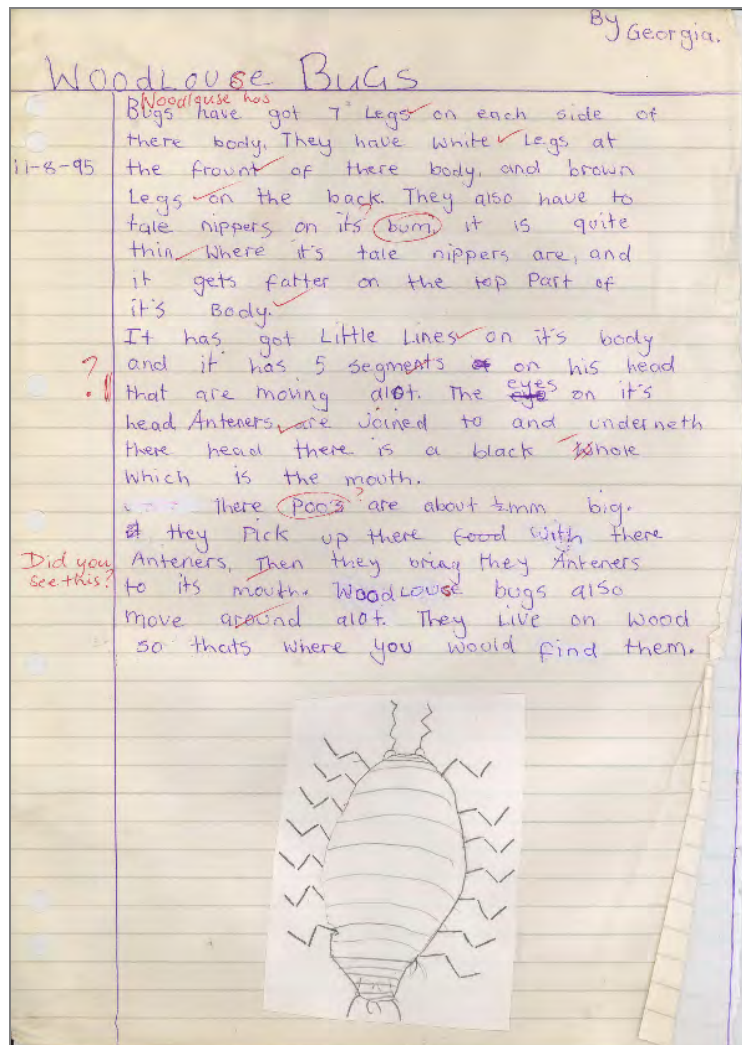 By Georgia.
WOODLOUSE BUGS
Woodlouse has
Bugs have got 7 Legs on each side of
there body. They have white Legs at
11-8-95 the frount of there body, and brown
Legs on the back. They also have to
tale nippers on its bum, it is quite
thin where it's tale nippers are, and
it gets fatter on the top Part of
it's Body.
It has got Little Lines on it's body
? and it has 5 segments on his head
! that are moving alot. The eyes on it's
head Anteners, are Joined to and underneth
there head there is a black Whole
Which is the mouth.
There Poos ? are about ½mm big.
they Pick up there food with there
Did you Anteners, Then they bring they Anteners
see this? to its mouth. WoodLouse bugs also
move around alot. They Live on Wood
so thats where you would find them.